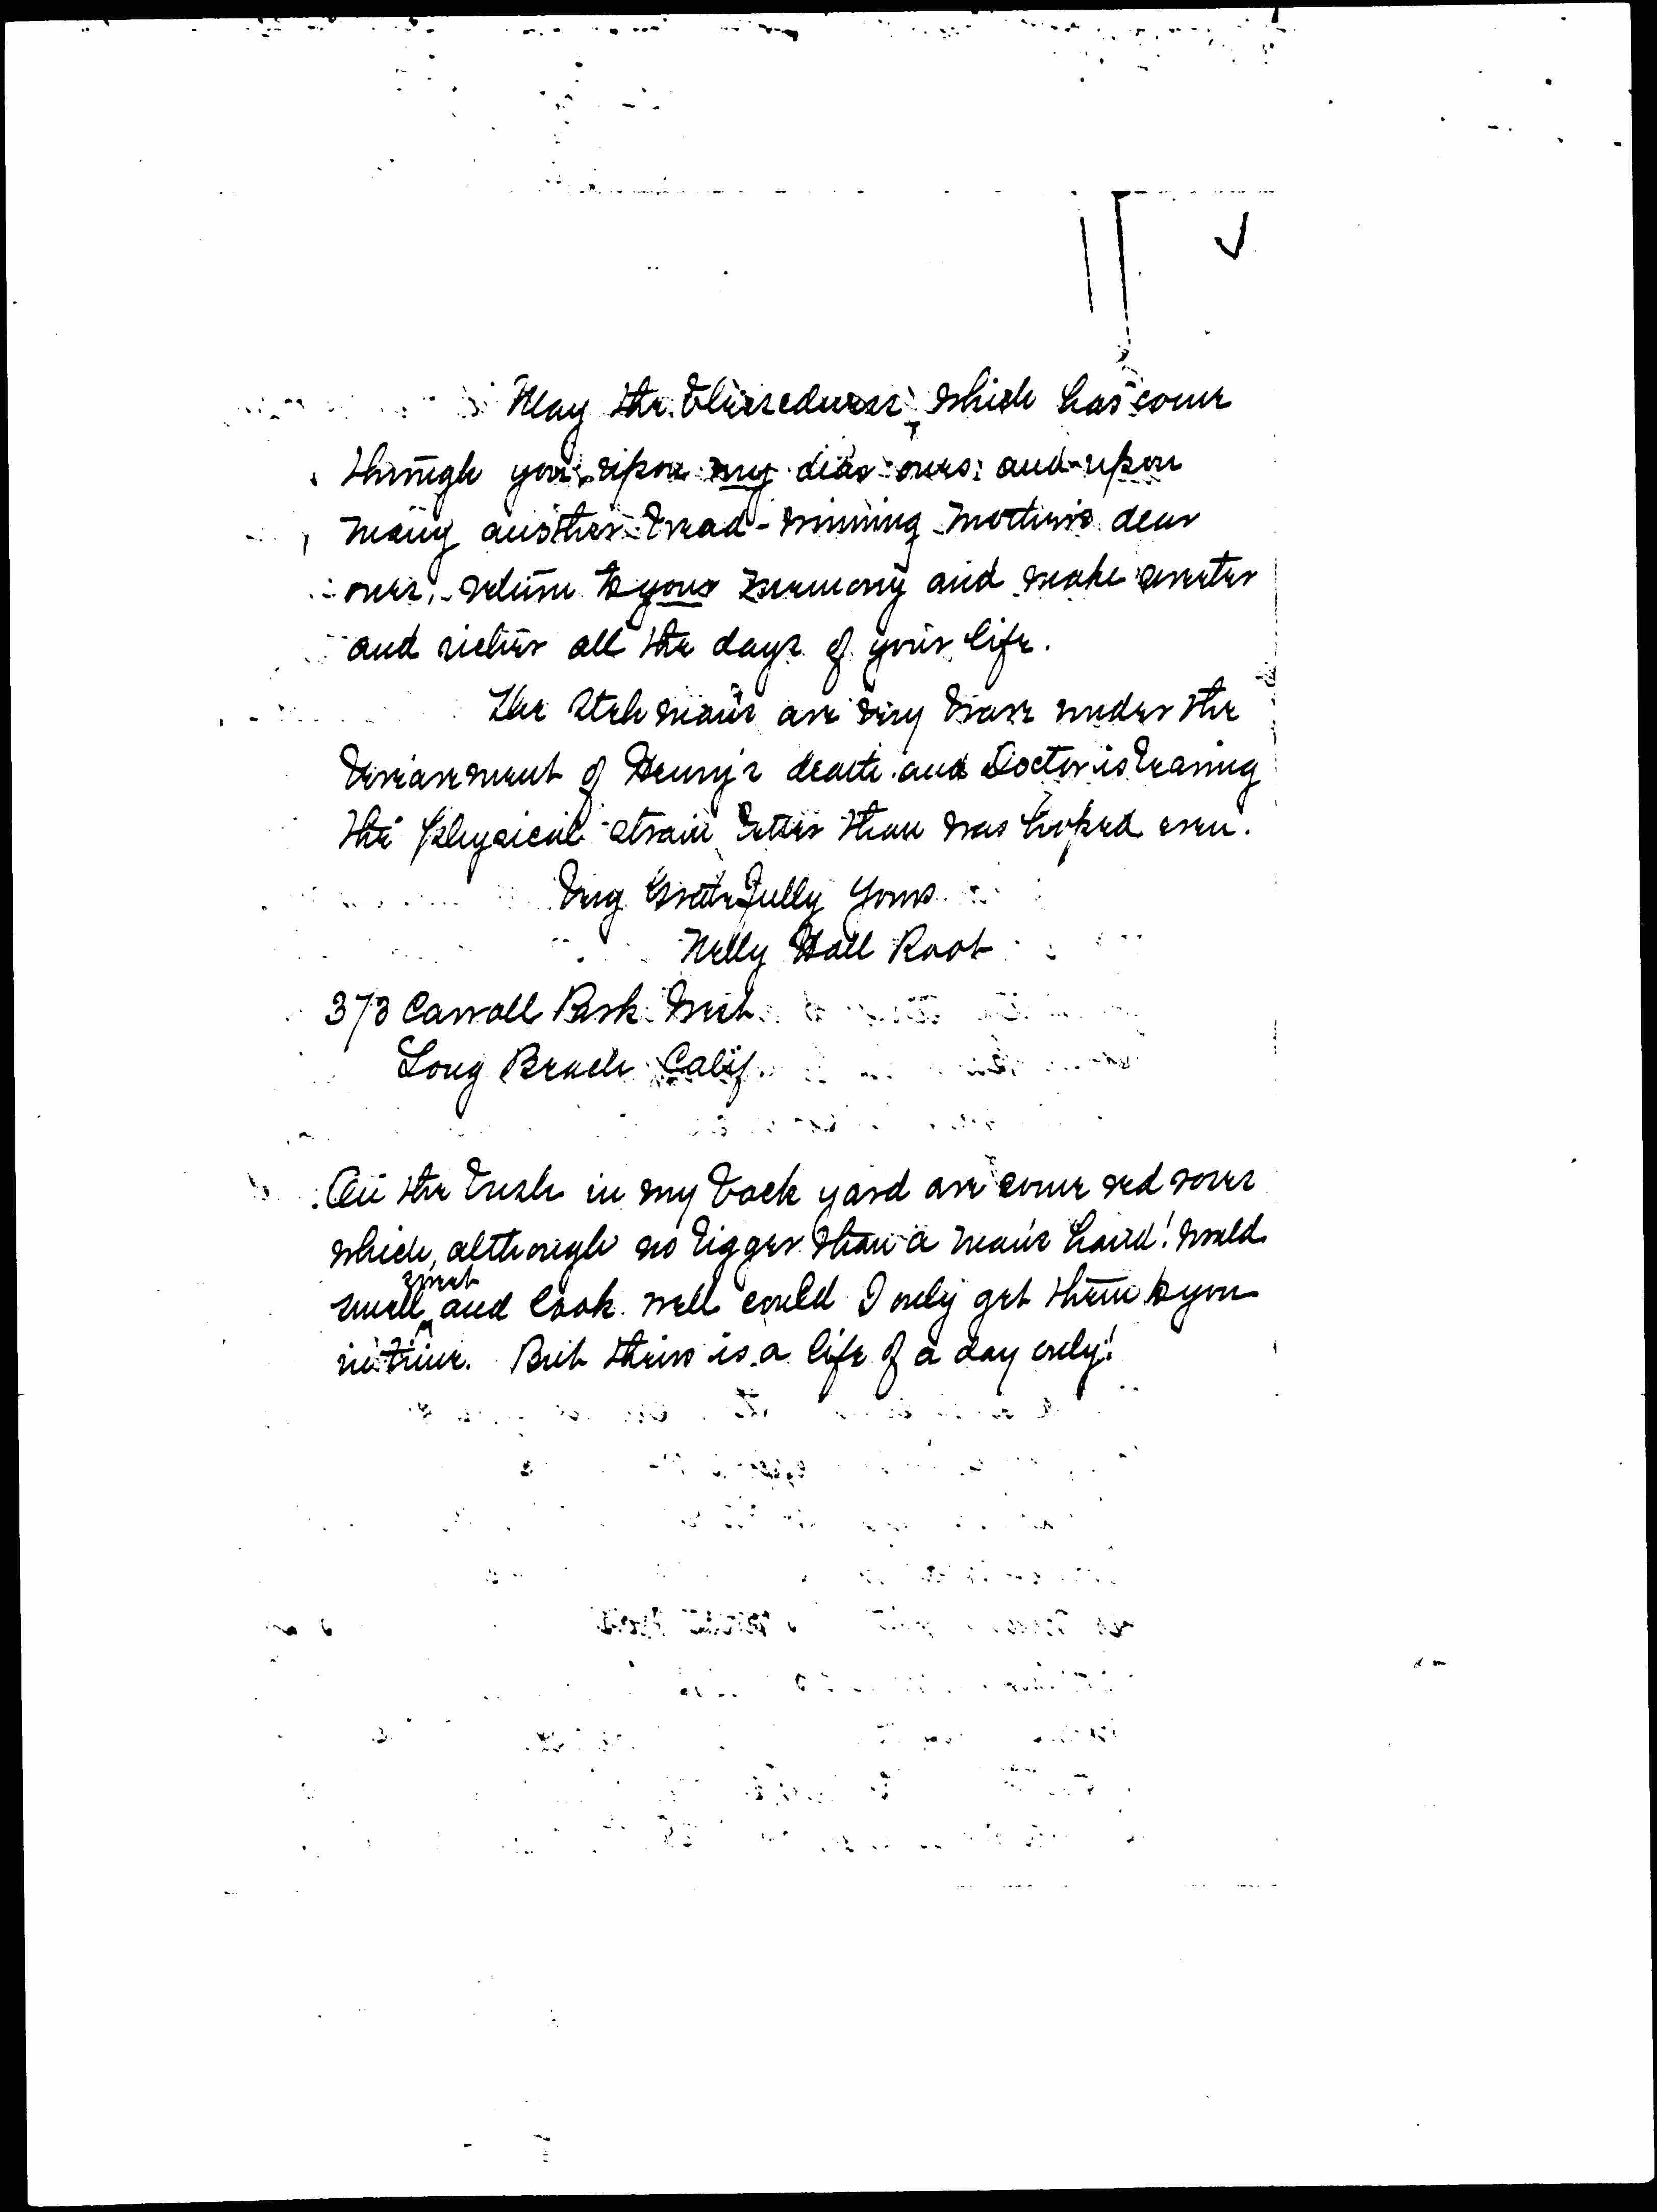 May the blessedness, which has come
through you upon my dear ones and upon
many another bread-winning mother's dear
ones, return to your memory and make sweeter
and richer all the days of your life.
The Stehmans are very brave under the
bereavement of Henry's death and Doctor is bearing
the physical strain better than was hoped even.
Very Gratefully Yours
Nelly Hall Root
373 Carroll Park West
Long Beach Calif.
On the bush in my back yard are some red roses
which, although no bigger than a man's hand! would
smell sweet and look well could I only get them to you
in time. But theirs is a life of a day only!